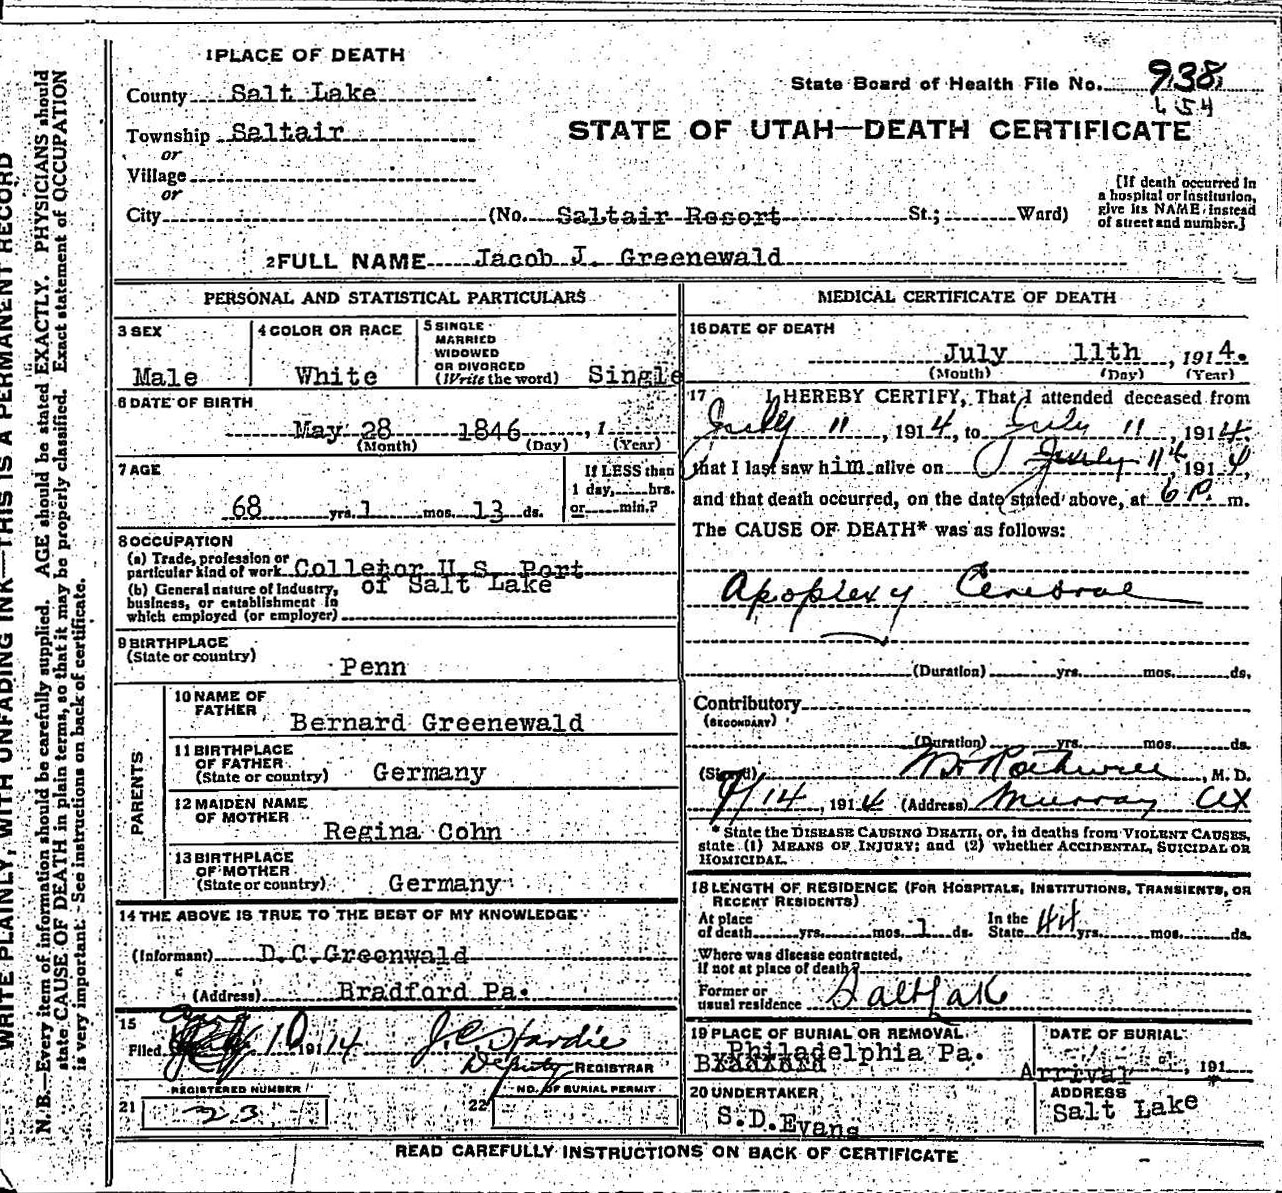 WRITE PLAINLY, WITH UNFADING INK—THIS IS A PERMANENT RECORD
N. B.—Every item of information should be carefully supplied. AGE should be stated EXACTLY. PHYSICIANS should
state CAUSE OF DEATH in plain terms, so that it may be properly classified. Exact statement of OCCUPATION
is very important. See instructions on back of certificate.
1 PLACE OF DEATH
County Salt Lake
Township Saltair
or
Village
or
City (No. Saltair Resort St.; Ward)
State Board of Health File No. 938
654
STATE OF UTAH—DEATH CERTIFICATE
[If death occurred in
a hospital or institution,
give its NAME instead
of street and number.]
2 FULL NAME Jacob J. Greenewald
PERSONAL AND STATISTICAL PARTICULARS
3 SEX
Male
4 COLOR OR RACE
White
5 SINGLE
MARRIED
WIDOWED
OR DIVORCED
(Write the word) Single
6 DATE OF BIRTH
May 28 1846, 1
(Month) (Day) (Year)
7 AGE
68 yrs. 1 mos. 13 ds.
If LESS than
1 day, hrs.
or min.?
8 OCCUPATION
(a) Trade, profession or
particular kind of work Colletor U.S. Port
(b) General nature of Industry, of Salt Lake
business, or establishment in
which employed (or employer)
9 BIRTHPLACE
(State or country)
Penn
PARENTS
10 NAME OF
FATHER
Bernard Greenewald
11 BIRTHPLACE
OF FATHER
(State or country) Germany
12 MAIDEN NAME
OF MOTHER
Regina Cohn
13 BIRTHPLACE
OF MOTHER
(State or country) Germany
14 THE ABOVE IS TRUE TO THE BEST OF MY KNOWLEDGE
(Informant) D.C.Greenwald
(Address) Bradford Pa.
15
Filed 10 1914 J.C. Hardie
Deputy REGISTRAR
REGISTERED NUMBER
21 23
NO. OF BURIAL PERMIT
22
MEDICAL CERTIFICATE OF DEATH
16 DATE OF DEATH
July 11th, 1914.
(Month) (Day) (Year)
17 I HEREBY CERTIFY, That I attended deceased from
July 11, 1914, to July 11, 1914,
that I last saw him alive on July 11th, 1914,
and that death occurred, on the date stated above, at 6 P. m.
The CAUSE OF DEATH* was as follows:
Apoplexy Cerebral
(Duration) yrs. mos. ds.
Contributory
(SECONDARY)
(Duration) yrs. mos. ds.
(Signed) Rothwell, M. D.
/14, 1914 (Address) Murray
* State the DISEASE CAUSING DEATH, or, in deaths from VIOLENT CAUSES,
state (1) MEANS OF INJURY; and (2) whether ACCIDENTAL, SUICIDAL OR
HOMICIDAL.
18 LENGTH OF RESIDENCE (FOR HOSPITALS, INSTITUTIONS, TRANSIENTS, OR
RECENT RESIDENTS)
At place
of death yrs. mos. 1 ds.
In the
State 44 yrs. mos. ds.
Where was disease contracted,
if not at place of death?
Former or
usual residence Salt Lake
19 PLACE OF BURIAL OR REMOVAL
Philadelphia Pa.
Bradford
DATE OF BURIAL
Arrival, 191
20 UNDERTAKER
S.D.Evans
ADDRESS
Salt Lake
READ CAREFULLY INSTRUCTIONS ON BACK OF CERTIFICATE